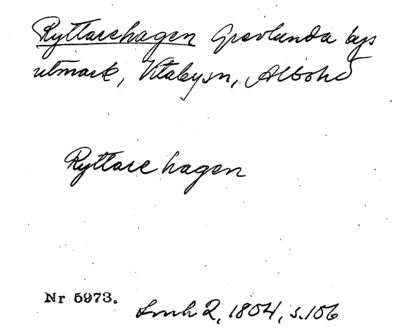 Ryttarehagen Grevlunda bys
utmark, Vitabysn, Albohd
Ryttare hagen
Nr 5973.
Lmh 2, 1804, s.106